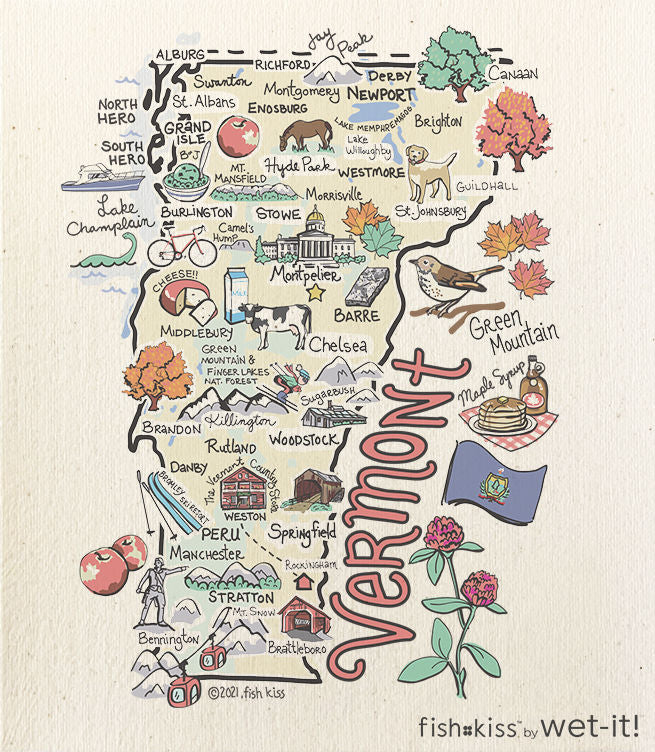 Jay Peak
ALBURG
RICHFORD
DERBY
CANAAN
Swanton
Montgomery
NEWPORT
St. Albans
ENOSBURG
LAKE MEMPHREMAGOG
Brighton
NORTH
HERO
GRAND
ISLE
Lake
Willoughby
SOUTH
HERO
B+J
Hyde Park
WESTMORE
MT.
MANSFIELD
GUILDHALL
Morrisville
Lake
Champlain
BURLINGTON
STOWE
St. JOHNSBURY
Camel's
Hump
Montpelier
CHEESE!!
MILK
BARRE
Green
Mountain
MIDDLEBURY
Chelsea
GREEN
MOUNTAIN &
FINGER LAKES
NAT. FOREST
Sugarbush
Maple Syrup
Killington
BRANDON
WOODSTOCK
Rutland
DANBY
The Vermont Country Store
BROMLEY
SKI RESORT
WESTON
PERU
Springfield
VERMONt
Manchester
ROCKINGHAM
STRATTON
MT. SNOW
Bennington
Brattleboro
©2021, fish kiss
fish kiss™ by wet-it!